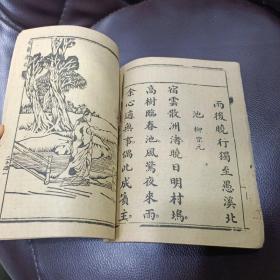 雨後曉行獨至愚溪北
池 柳宗元
宿雲散洲渚曉日明村塢
高樹臨春池風驚夜來雨
余心適無事偶此成賓主